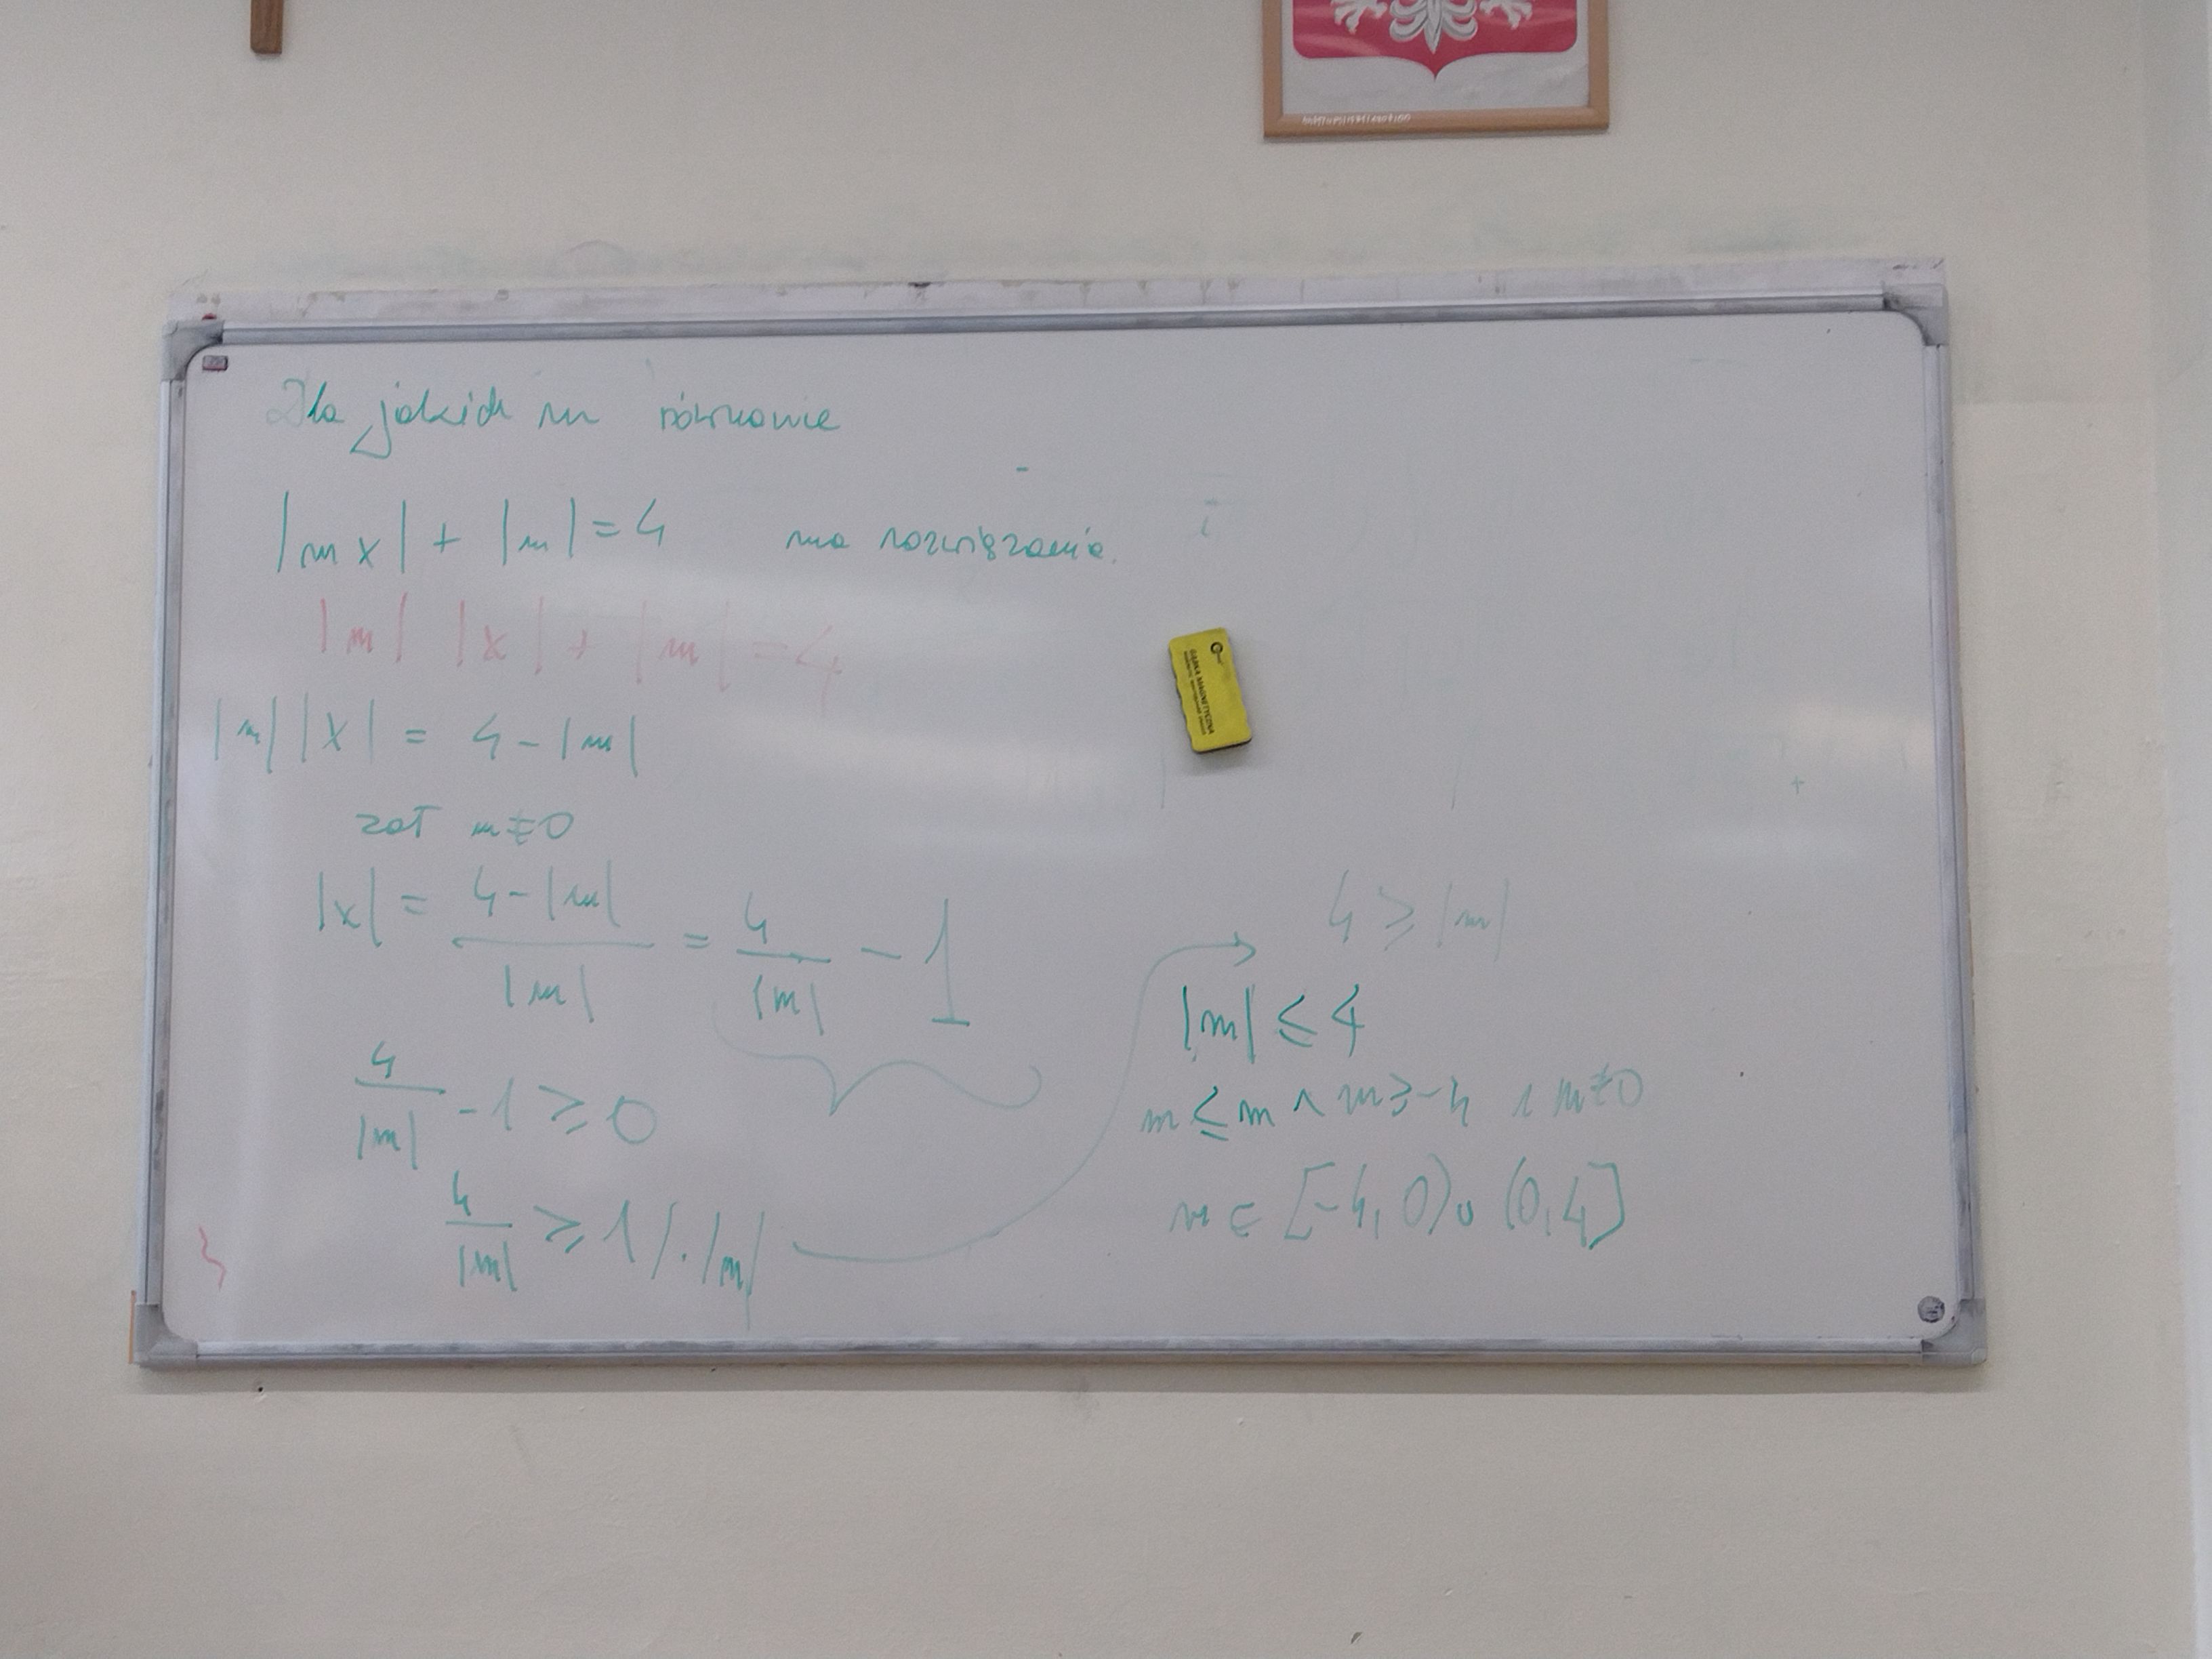 Dla jakich m równanie
|mx| + |m| = 4 ma rozwiązanie.
|m| |x| + |m| = 4
|m| |x| = 4 - |m|
zał m ≠ 0
|x| = \frac{4 - |m|}{|m|} = \frac{4}{|m|} - 1
\frac{4}{|m|} - 1 ≥ 0
\frac{4}{|m|} ≥ 1 / · |m|
4 ≥ |m|
|m| ≤ 4
m ≤ m ∧ m ≥ -4 ∧ m ≠ 0
m ∈ [-4, 0) ∪ (0, 4]
GĄBKA MAGNETYCZNA